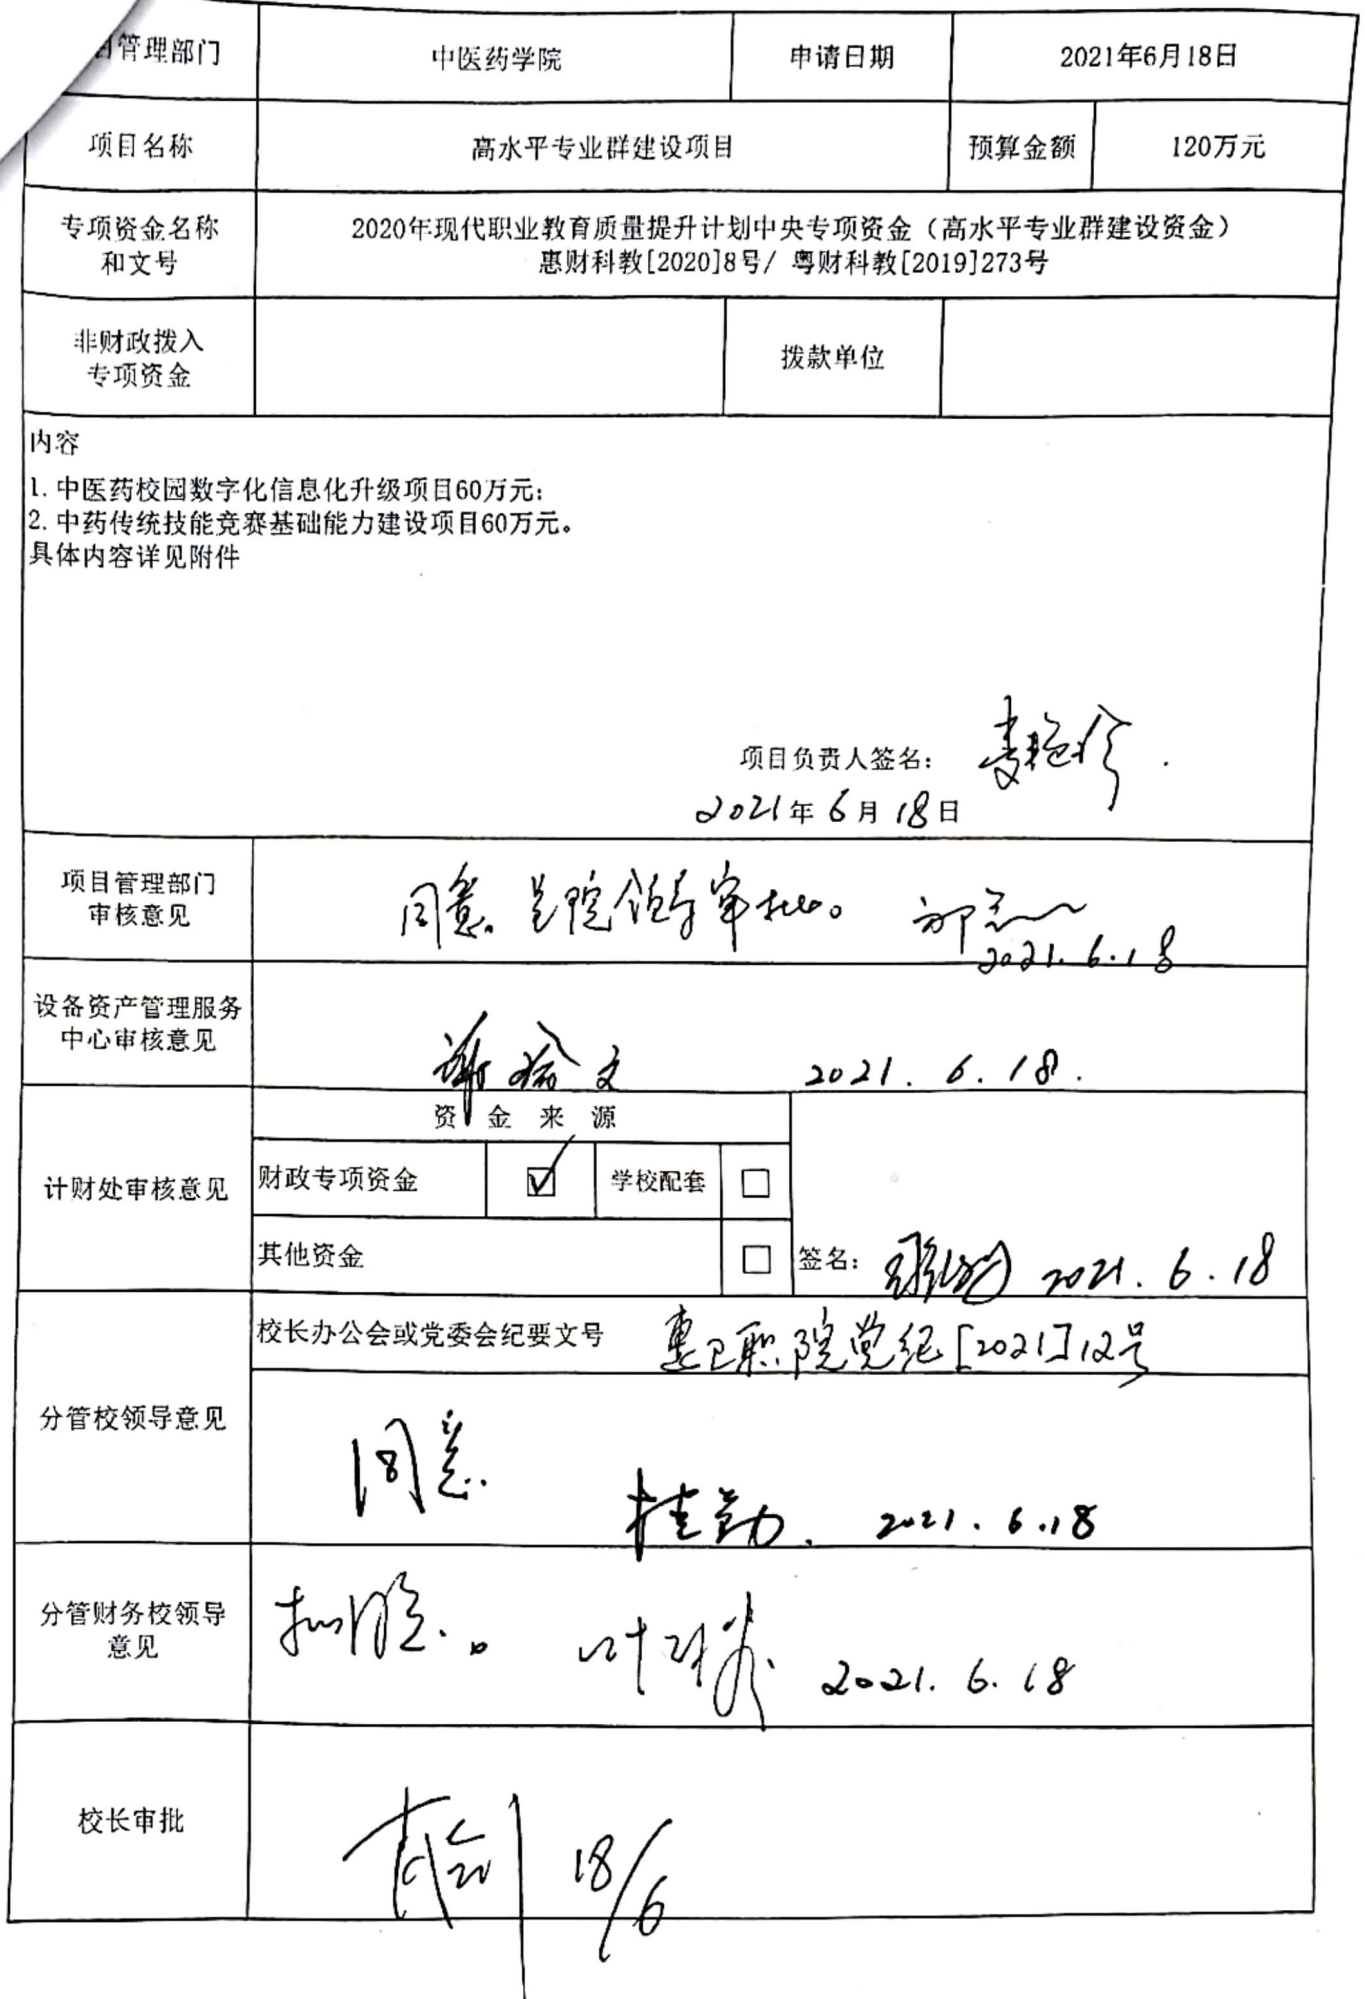 目管理部门 中医药学院 申请日期 2021年6月18日
项目名称 高水平专业群建设项目 预算金额 120万元
专项资金名称
和文号
2020年现代职业教育质量提升计划中央专项资金（高水平专业群建设资金）
惠财科教[2020]8号/ 粤财科教[2019]273号
非财政拨入
专项资金
拨款单位
内容
1. 中医药校园数字化信息化升级项目60万元；
2. 中药传统技能竞赛基础能力建设项目60万元。
具体内容详见附件
项目负责人签名：
2021年6月18日
项目管理部门
审核意见
同意。呈院领导审批。
2021.6.18
设备资产管理服务
中心审核意见
2021.6.18.
计财处审核意见
资 金 来 源
财政专项资金 ☑ 学校配套 □
其他资金 □
签名： 2021.6.18
分管校领导意见
校长办公会或党委会纪要文号 惠卫职院党纪[2021]12号
同意.
桂勤. 2021.6.18
分管财务校领导
意见
2021.6.18
校长审批
18/6